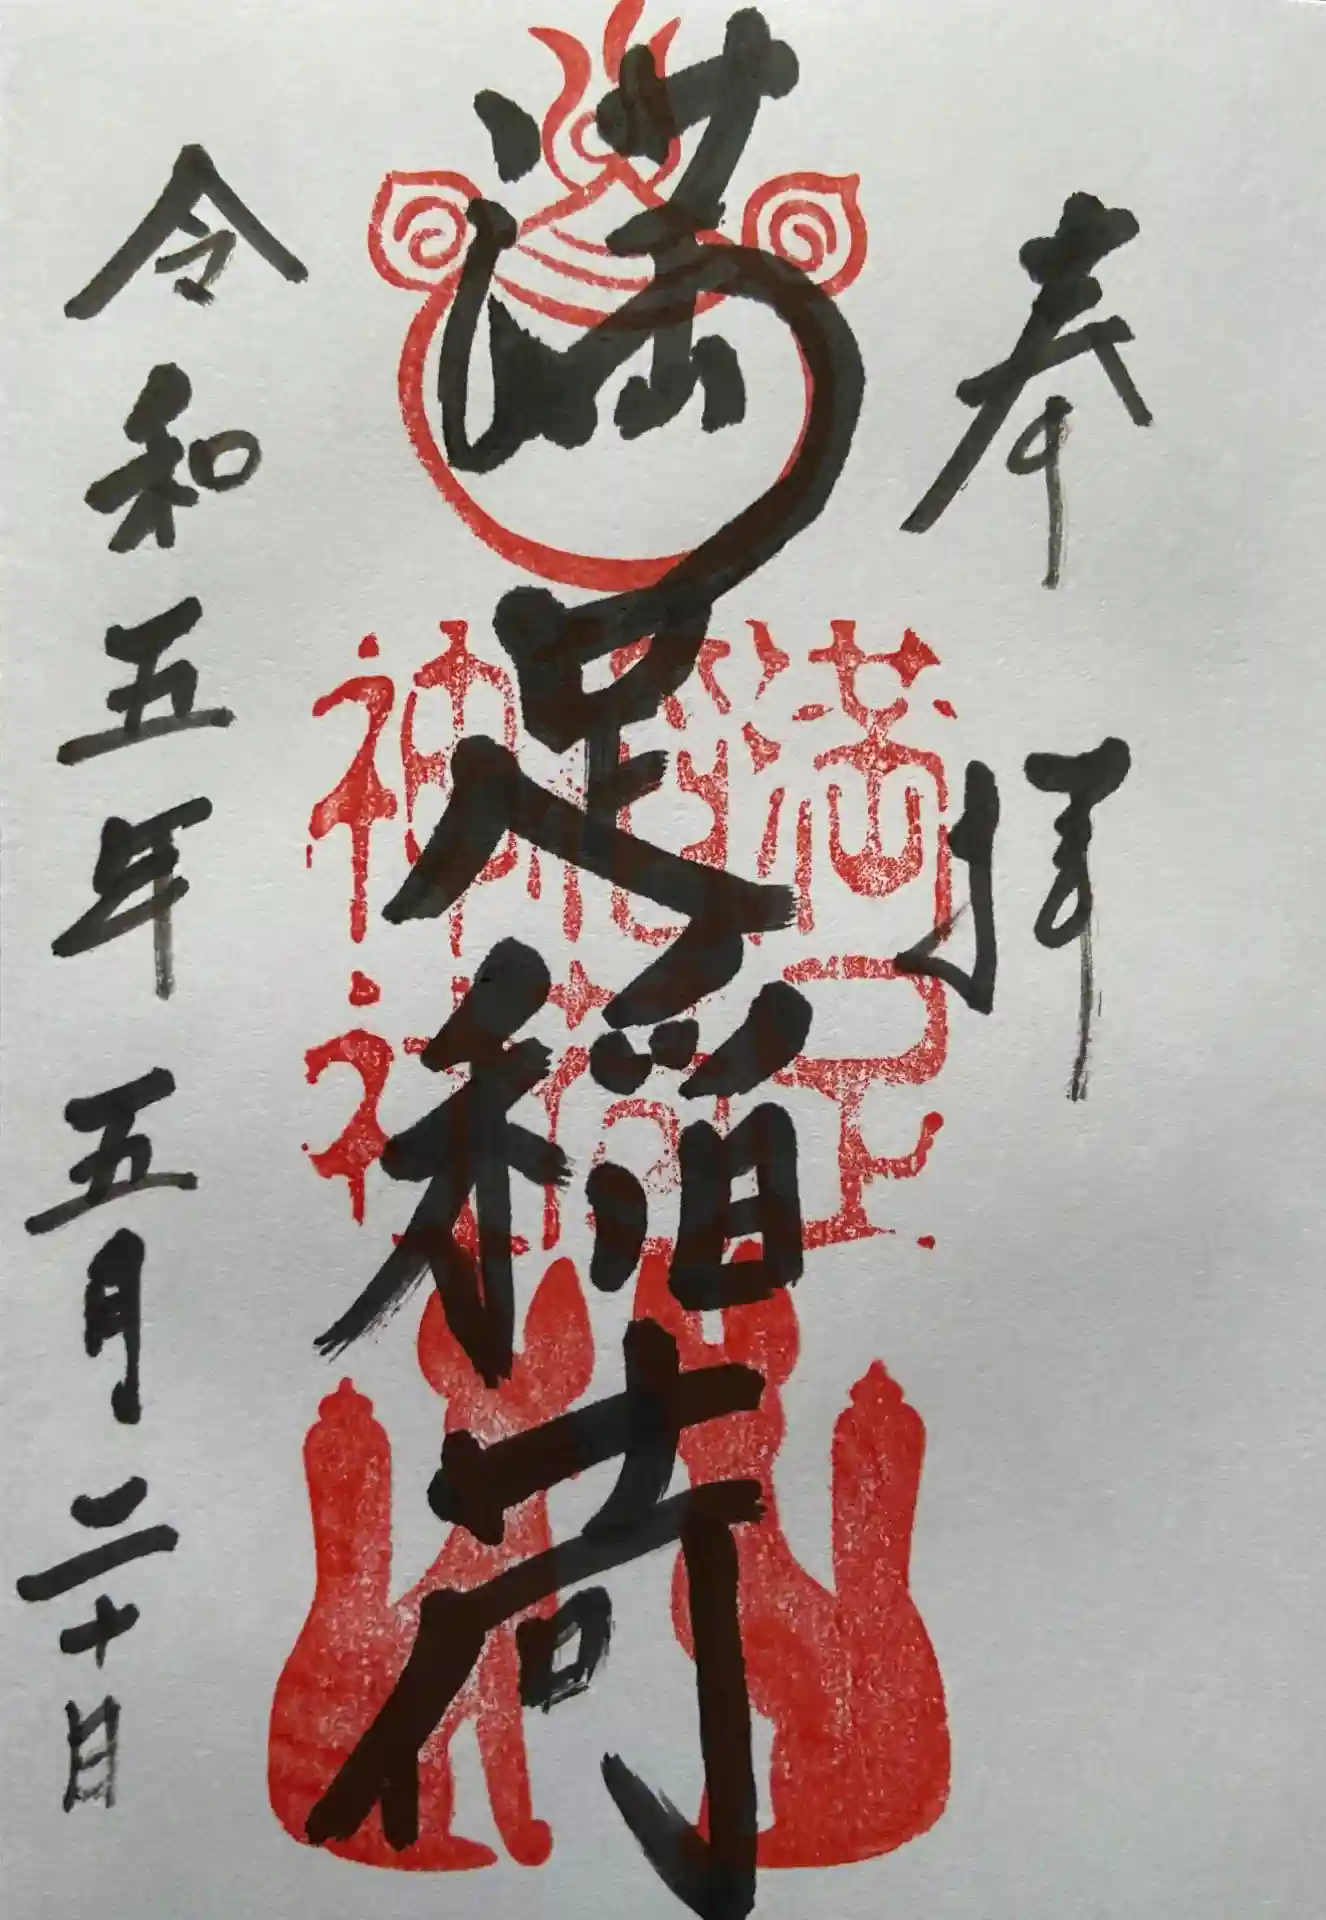 奉拝
満足稲荷
満足稲荷神社
令和五年五月二十日